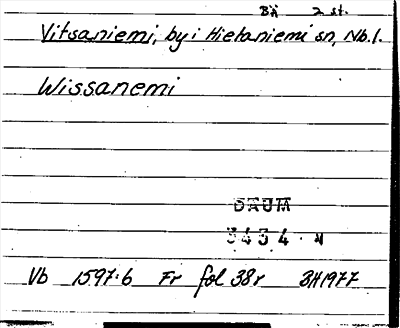 Bä 2 st.
Vitsaniemi, by i Hietaniemi sn, Nb.l.
Wissanemi
DAUM
3434
Vb 1597:6 Fr fol 38r BH1977